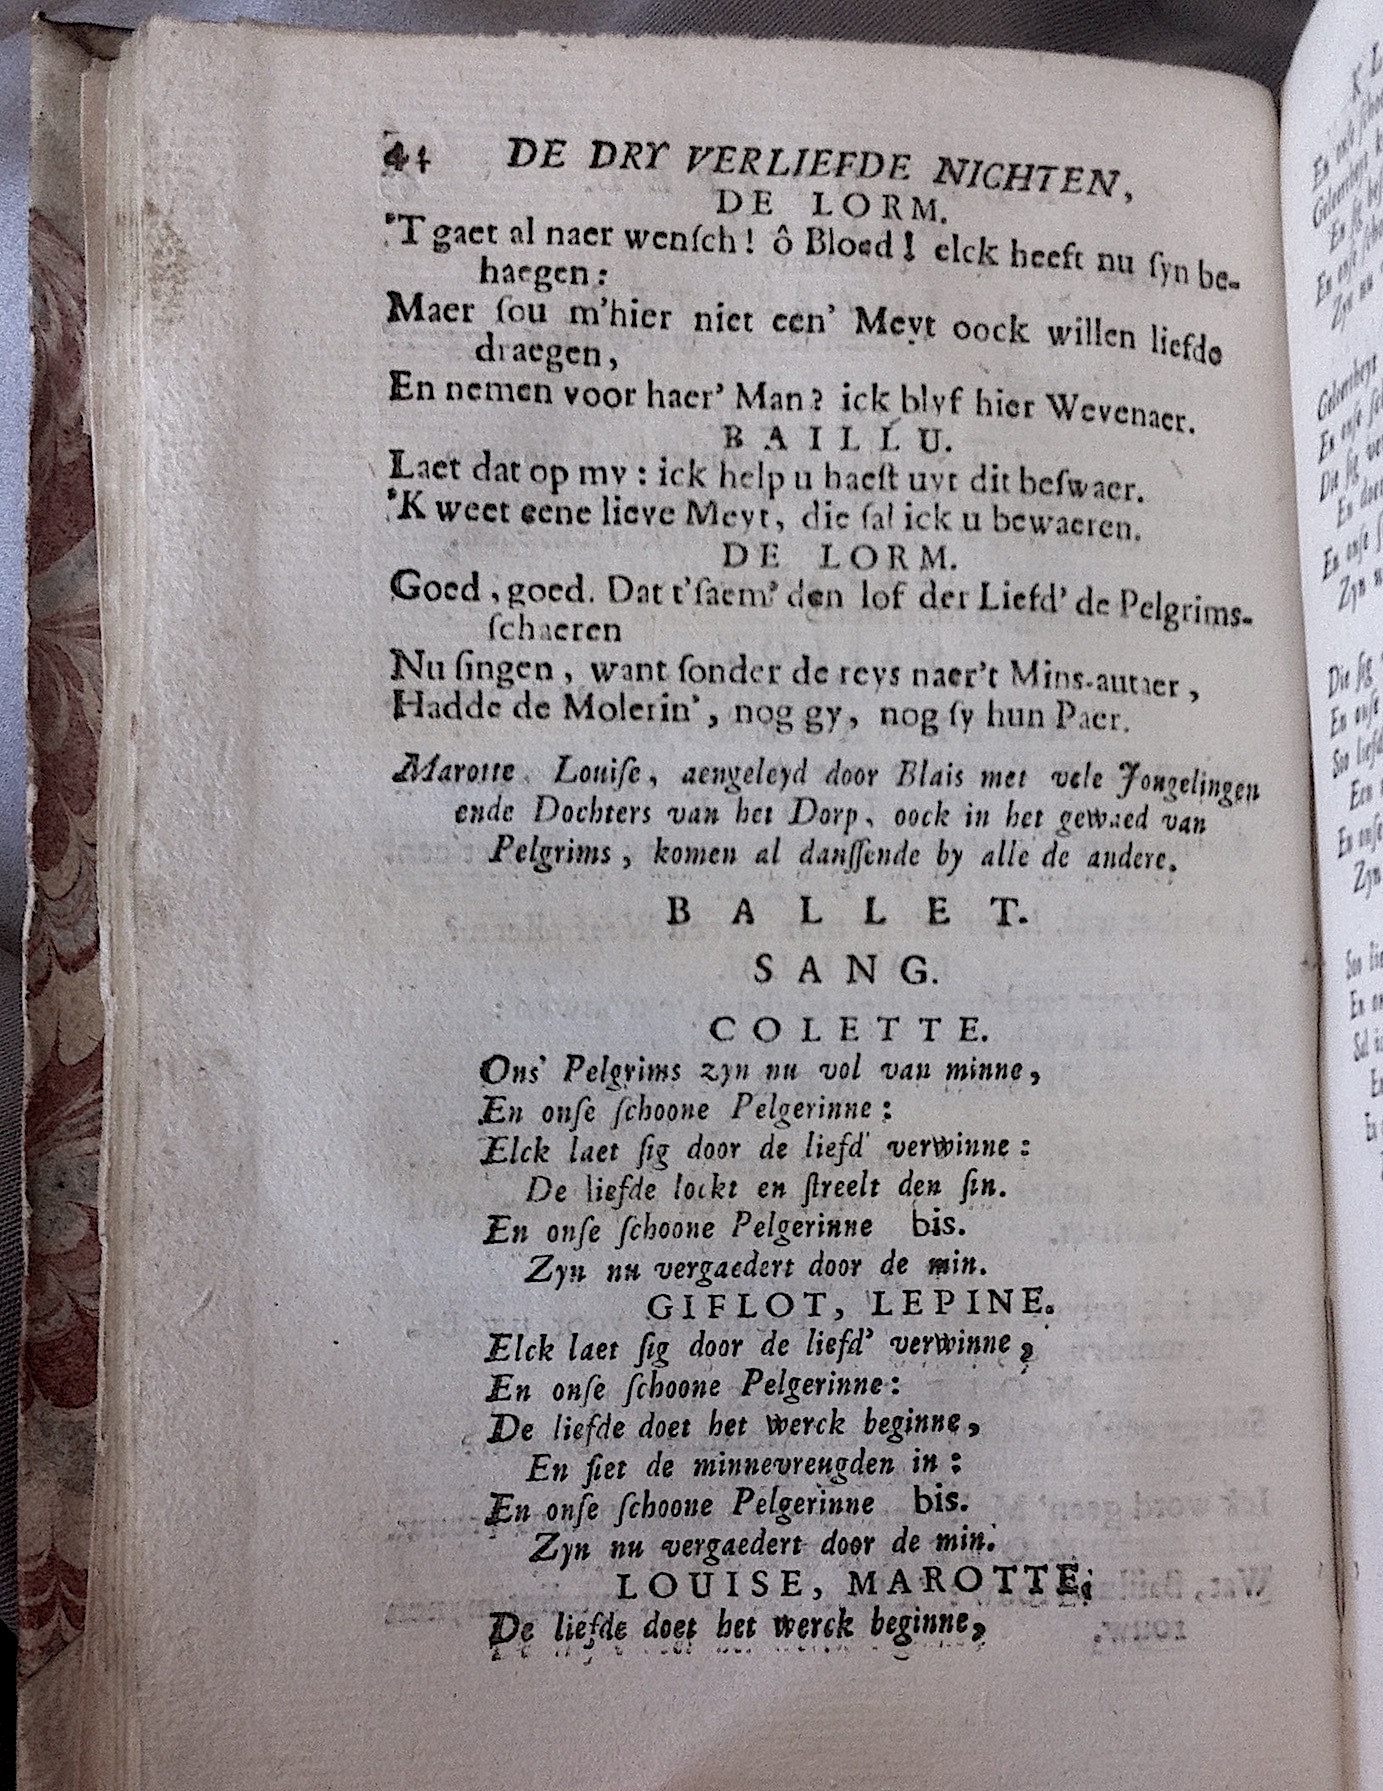 44 DE DRY VERLIEFDE NICHTEN,
DE LORM.
'T gaet al naer wenſch! ô Bloed! elck heeft nu ſyn be-
haegen:
Maer ſou m'hier niet een' Meyt oock willen liefde
draegen,
En nemen voor haer' Man? ick blyf hier Wevenaer.
BAILLU.
Laet dat op my: ick help u haeſt uyt dit beſwaer.
'K weet eene lieve Meyt, die ſal ick u bewaeren.
DE LORM.
Goed, goed. Dat t'ſaem' den lof der Liefd' de Pelgrims-
ſchaeren
Nu ſingen, want ſonder de reys naer't Mins-autaer,
Hadde de Molerin', nog gy, nog ſy hun Paer.
Marotte, Louiſe, aengeleyd door Blais met vele Jongelingen
ende Dochters van het Dorp, oock in het gewaed van
Pelgrims, komen al danſſende by alle de andere.
BALLET.
SANG.
COLETTE.
Ons' Pelgrims zyn nu vol van minne,
En onſe ſchoone Pelgerinne:
Elck laet ſig door de liefd' verwinne:
De liefde lockt en ſtreelt den ſin.
En onſe ſchoone Pelgerinne bis.
Zyn nu vergaedert door de min.
GIFLOT, LEPINE.
Elck laet ſig door de liefd' verwinne,
En onſe ſchoone Pelgerinne:
De liefde doet het werck beginne,
En ſiet de minnevreugden in:
En onſe ſchoone Pelgerinne bis.
Zyn nu vergaedert door de min.
LOUISE, MAROTTE.
De liefde doet het werck beginne,